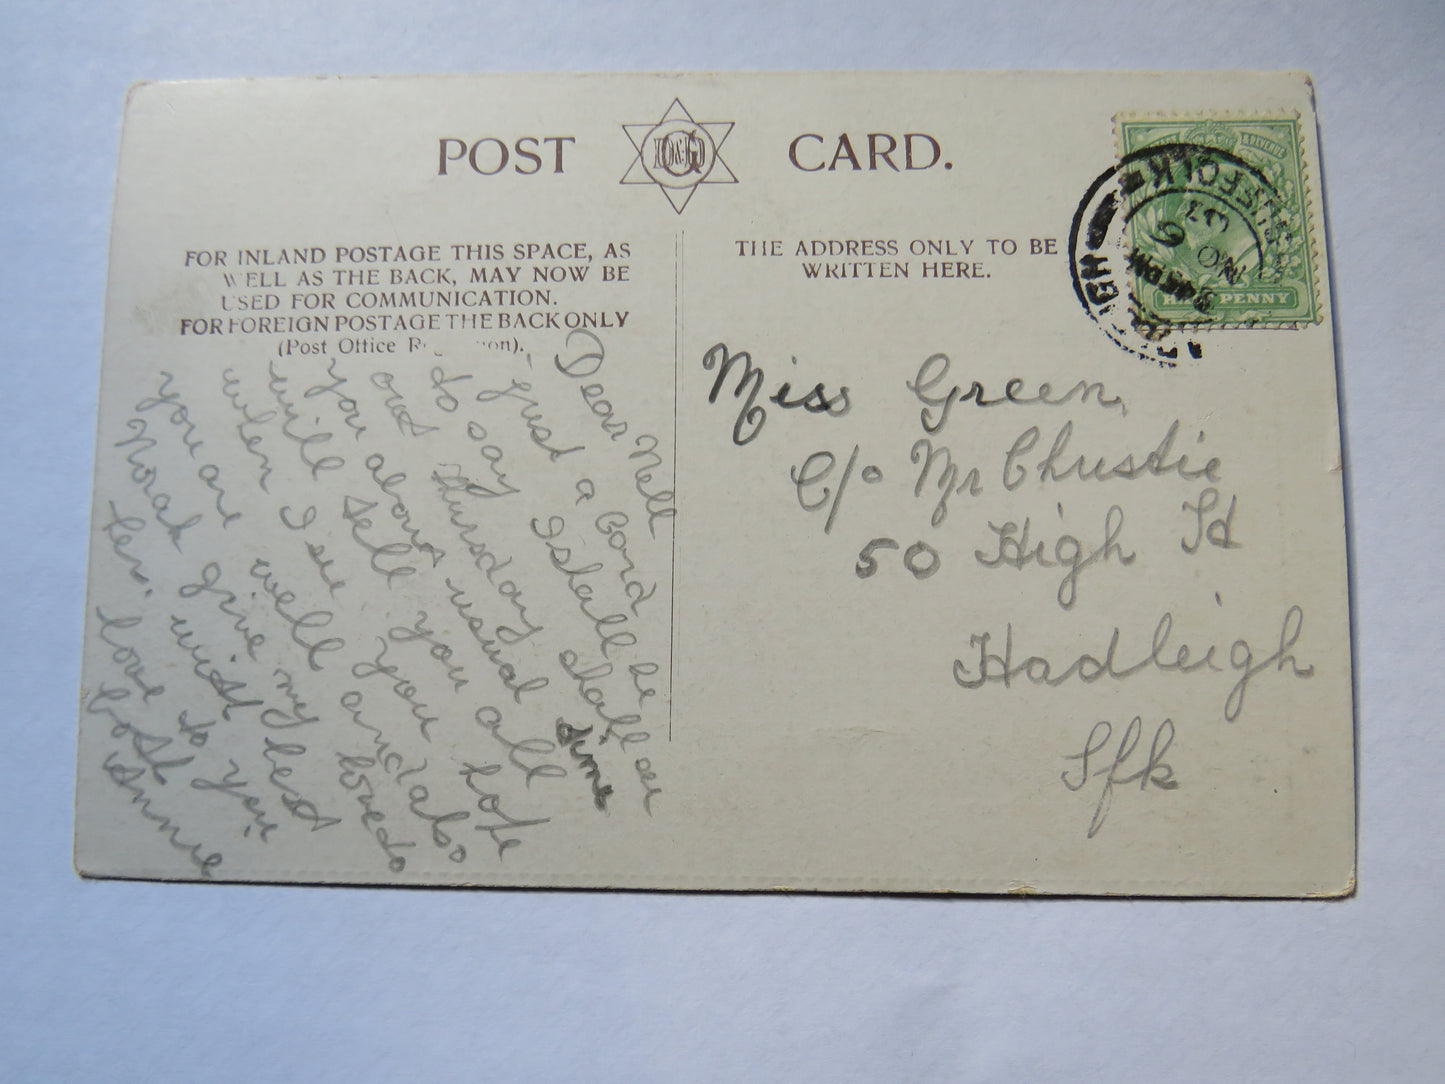 POST CARD.
FOR INLAND POSTAGE THIS SPACE, AS
WELL AS THE BACK, MAY NOW BE
USED FOR COMMUNICATION.
FOR FOREIGN POSTAGE THE BACK ONLY
(Post Office
THE ADDRESS ONLY TO BE
WRITTEN HERE.
Dear Nell
just a Card
to say I shall be
out thursday shall see
you about usual time
will tell you all
when I see you hope
you are well and also
Norah give my love to
her. with best
love to you
both
Annie
Miss Green,
C/o Mr Christie
50 High St
Hadleigh
Sfk
SUFFOLK
NO 6
HALFPENNY